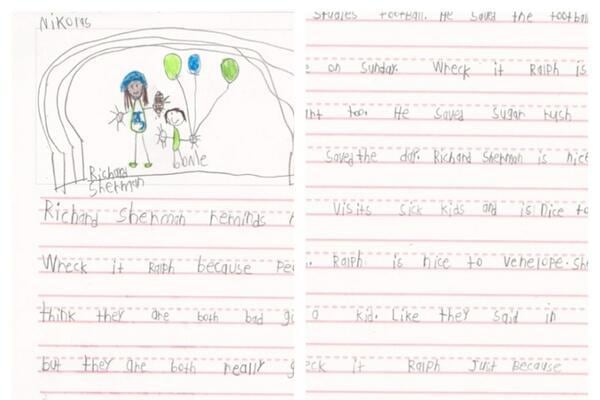 Nikolas
Richard
Sherman
Richard Sherman reminds
Wreck it Ralph because
think they are both bad
but they are both really
studies football. He saved the
on Sunday. Wreck it Ralph is
too. He saved sugar rush
saved the day. Richard Sherman is nice
Visits sick kids and is nice to
Ralph is nice to Venelope. She
a kid. Like they said in
it Ralph Just Because